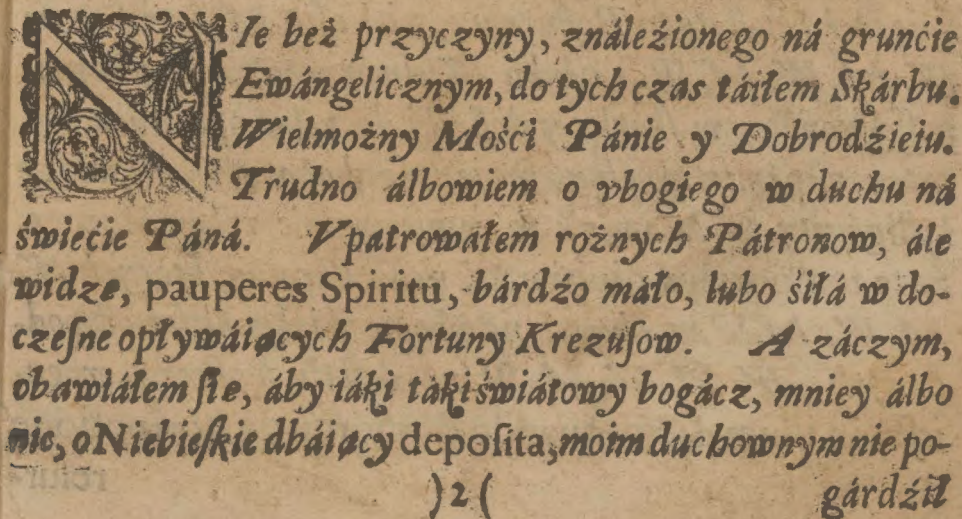 NIe beż przyczyny, ználeźionego ná grunćie
Ewángelicznym, do tych czas táiłem Skárbu.
Wielmożny Mośći Pánie y Dobrodźieiu.
Trudno álbowiem o vbogiego w duchu ná
świećie Páná. Vpatrowałem rożnych Pátronow, ále
widzę, pauperes Spiritu, bárdźo máło, lubo śiłá w do-
czeſne opływáiących Fortuny Krezuſow. A záczym,
obawiáłem ſię, áby iáki táki świátowy bogácz, mniey álbo
nic, o Niebieſkie dbáiący depoſita, moim duchownym nie po-
)2( gárdźił